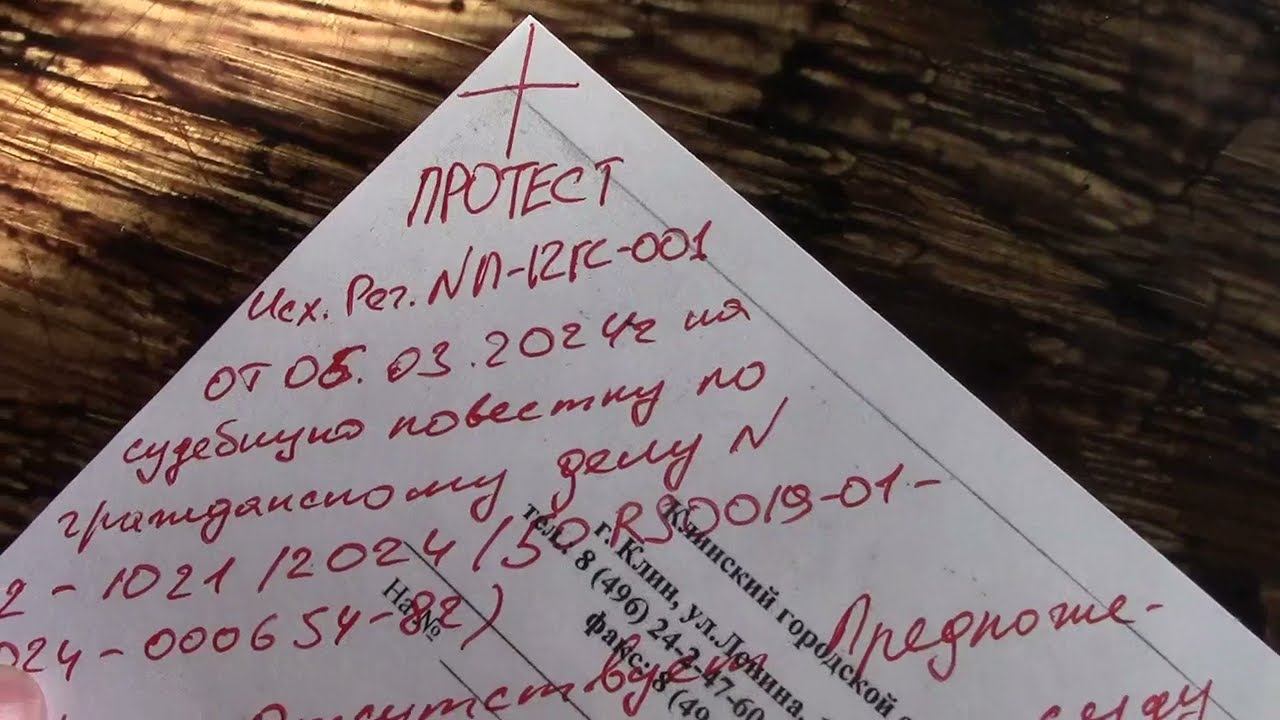 ПРОТЕСТ
Исх. Рег. №П-12ГС-001
от 05.03.2024г на
судебную повестку по
гражданскому делу N
2-1021/2024 (50RS0019-01-
024-000654-82)
Отсутствует Предложе-
Клинский городской
г. Клин, ул. Ленина,
тел.: 8 (496) 24-2-47-60
факс: 8 (49
На №